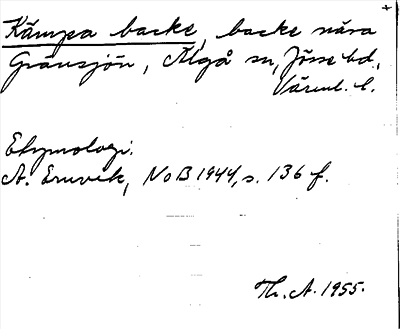 +
Kämpa backe, backe nära
Gränsjön, Älgå sn, Jösse hd,
Värml. l.
Etymologi.
A. Ernvik, NoB 1944, s. 136 f.
Th. A. 1955.